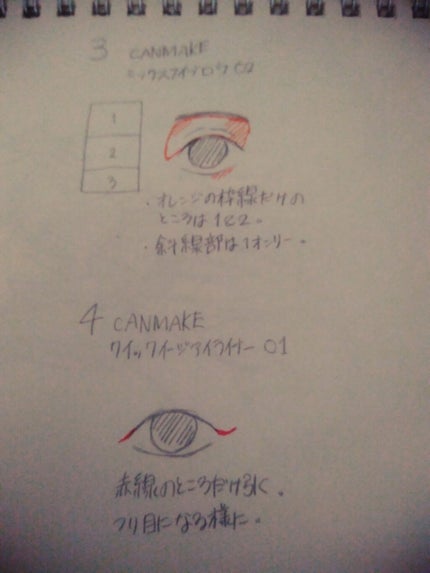 3 CANMAKE
ミックスアイブロウ 02
1
2
3
・オレンジの枠線だけの
ところは1と2。
・斜線部は1オンリー。
4 CANMAKE
クイックイージーアイライナー 01
赤線のところだけ引く。
ツリ目になる様に。